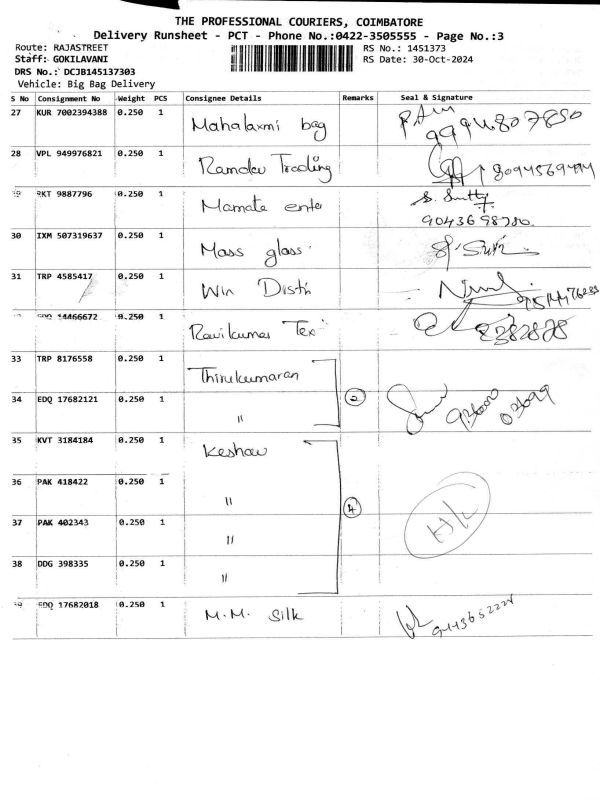 THE PROFESSIONAL COURIERS, COIMBATORE
Delivery Runsheet - PCT - Phone No.:0422-3505555 - Page No.:3
Route: RAJASTREET RS No.: 1451373
Staff: GOKILAVANI RS Date: 30-Oct-2024
DRS No.: DCJB145137303
Vehicle: Big Bag Delivery
S No Consignment No Weight PCS Consignee Details Remarks Seal & Signature
27 KUR 7002394388 0.250 1 Mahalaxmi bag
28 VPL 949976821 0.250 1 Ramdev Trading
9887796 0.250 1 Mamata enter 9043698780
30 IXM 507319637 0.250 1 Mass glass
31 TRP 4585417 0.250 1 Win Distri
14466672 0.250 1 Ravikumar Tex
33 TRP 8176558 0.250 1 Thirukumaran
34 EDQ 17682121 0.250 1 " 2
35 KVT 3184184 0.250 1 Keshav
36 PAK 418422 0.250 1 " 4
37 PAK 402343 0.250 1 "
38 DDG 398335 0.250 1 "
EDQ 17682018 0.250 1 M.M. Silk